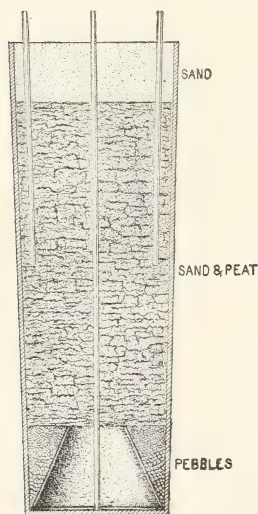 SAND
SAND & PEAT
PEBBLES